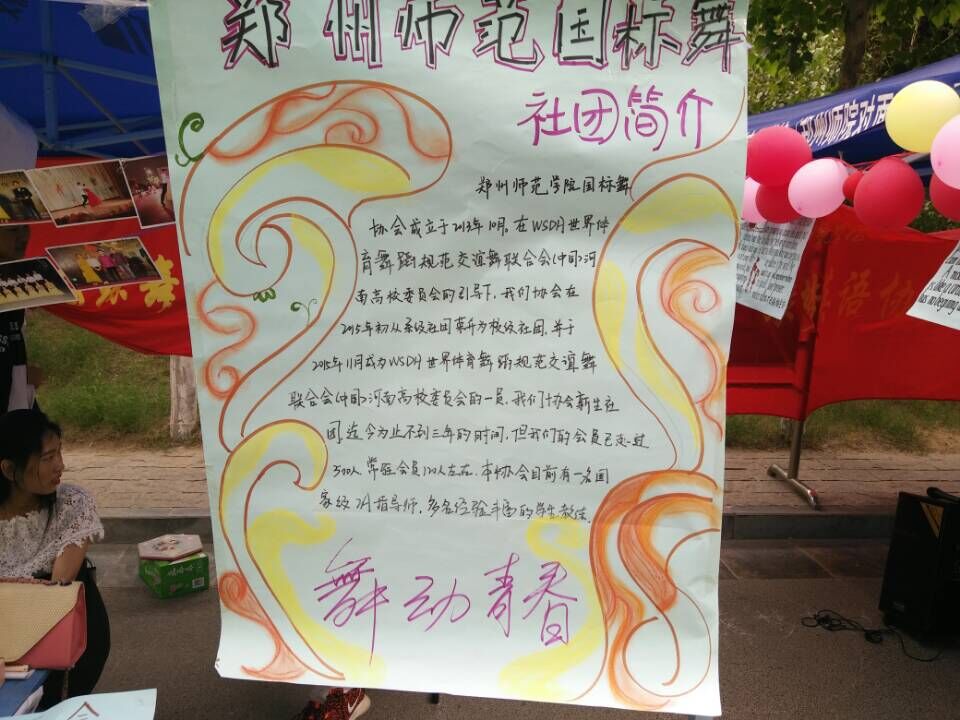 郑州师范国标舞
社团简介
郑州师范学院国标舞
协会成立于2013年10月。在WSDA世界体
育舞蹈规范交谊舞联合会(中国)河
南高校委员会的引导下，我们协会在
2015年初从系级社团荣升为校级社团，并于
2015年11月成为WSDA世界体育舞蹈规范交谊舞
联合会(中国)河南高校委员会的一员，我们协会新生社
团，迄今为止不到三年的时间，但我们的会员已超过
500人，常驻会员120人左右，本协会目前有一名国
家级 指导师，多名经验丰富的学生教练。
舞动青春
郑州师院对
语协